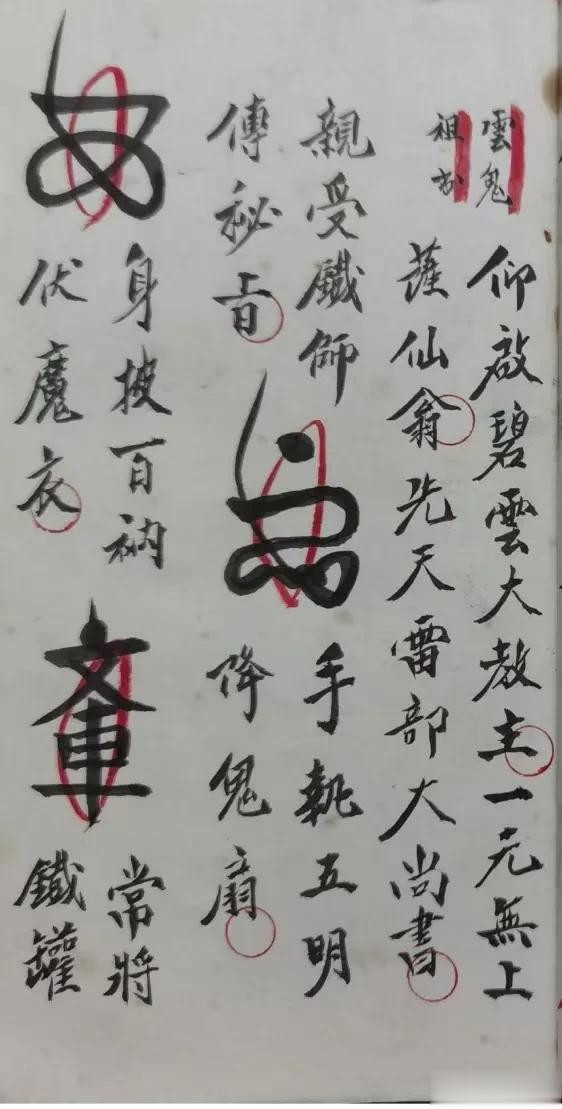 雲鬼
祖
仰啟碧雲大教主一元無上
薩仙翁先天雷部大尚書
親受鐵師
傳秘旨
手執五明
降鬼扇
身披百衲
伏魔衣
常將
鐵罐